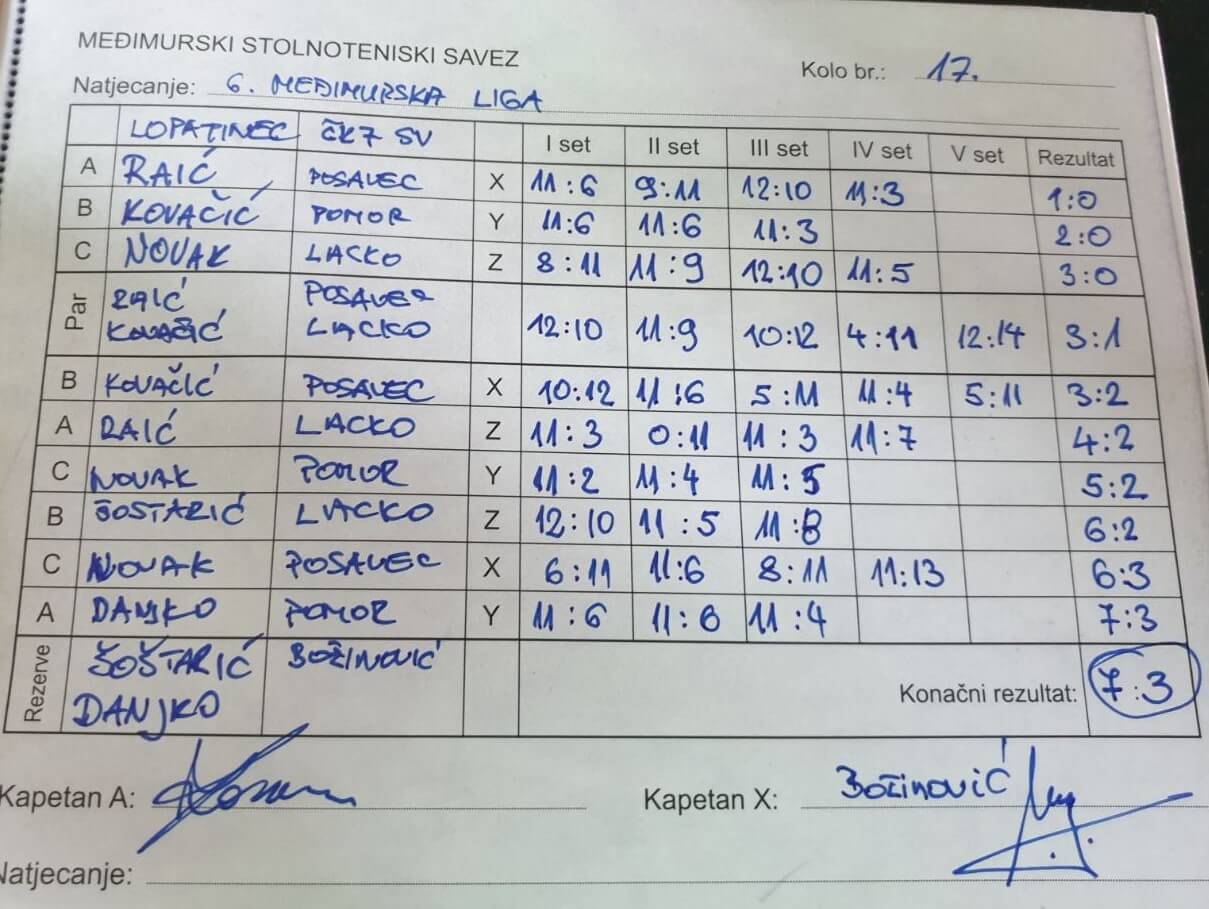 MEĐIMURSKI STOLNOTENISKI SAVEZ
Kolo br.: 17.
Natjecanje: 6. MEĐIMURSKA LIGA
LOPATINEC ČK7 SV I set II set III set IV set V set Rezultat
A RAIĆ POSAVEC X 11:6 9:11 12:10 11:3 1:0
B KOVAČIĆ POMOR Y 11:6 11:6 11:3 2:0
C NOVAK LACKO Z 8:11 11:9 12:10 11:5 3:0
Par RAIĆ POSAVEC
KOVAČIĆ LACKO 12:10 11:9 10:12 4:11 12:14 3:1
B KOVAČIĆ POSAVEC X 10:12 11:6 5:11 11:4 5:11 3:2
A RAIĆ LACKO Z 11:3 0:11 11:3 11:7 4:2
C NOVAK POMOR Y 11:2 11:4 11:5 5:2
B ŠOSTARIĆ LACKO Z 12:10 11:5 11:8 6:2
C NOVAK POSAVEC X 6:11 11:6 8:11 11:13 6:3
A DANJKO POMOR Y 11:6 11:6 11:4 7:3
Rezerve ŠOŠTARIĆ BOŽINOVIĆ
DANJKO Konačni rezultat: 7:3
Kapetan A: Kapetan X: BOŽINOVIĆ
Natjecanje: